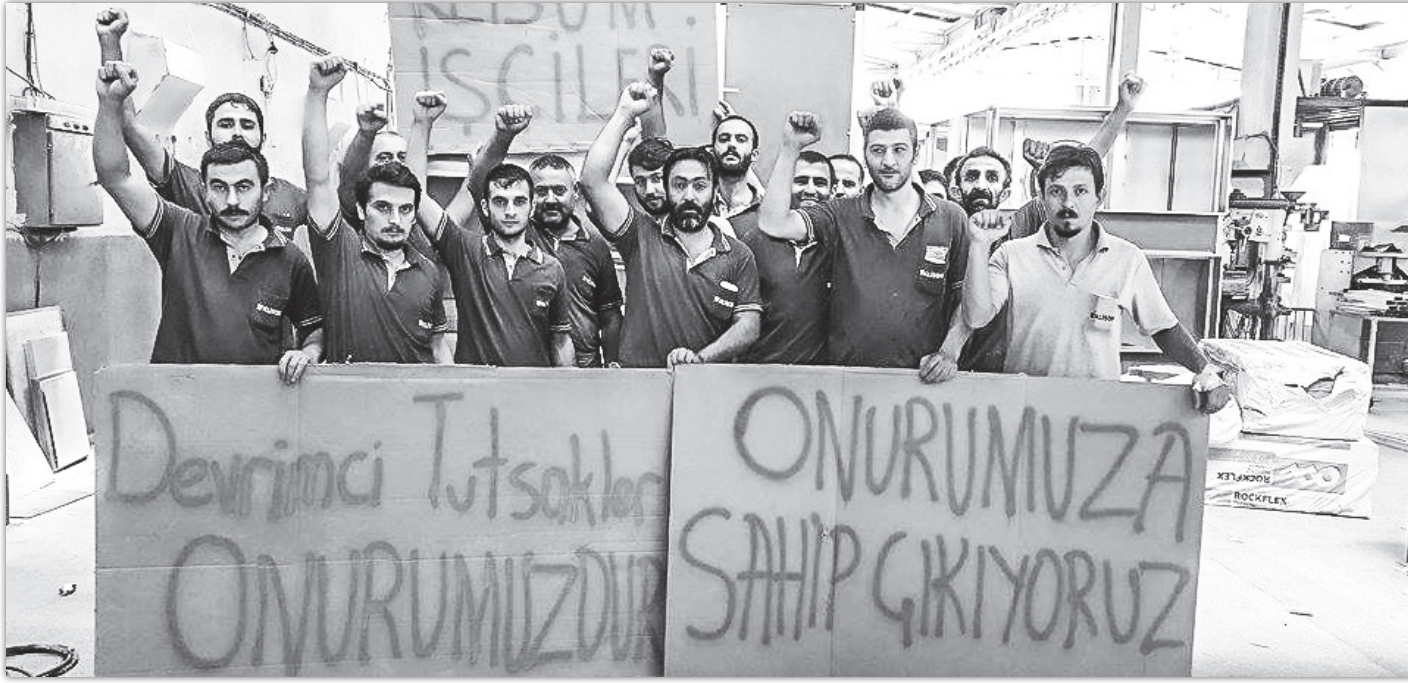 İŞÇİLERİ
Devrimci Tutsaklar
ONURUMUZDUR
ONURUMUZA
SAHİP ÇIKIYORUZ
ROCKFLEX
ROCKFLEX